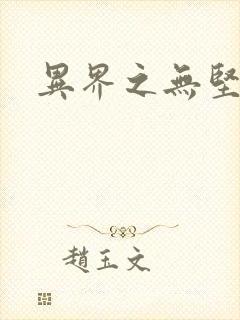 異界之無堅
趙玉文